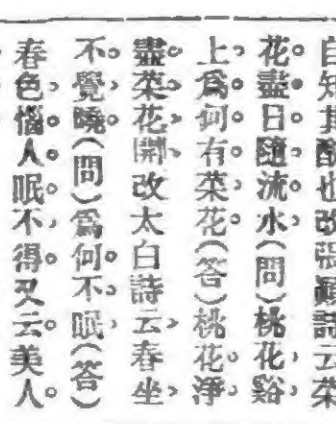 自知其醉也改張顛詩云菜
花盡日隨流水(問)桃花谿
上爲何有菜花(答)桃花淨
盡菜花開改太白詩云春坐
不覺曉(問)爲何不眠(答)
春色惱人眠不得又云美人